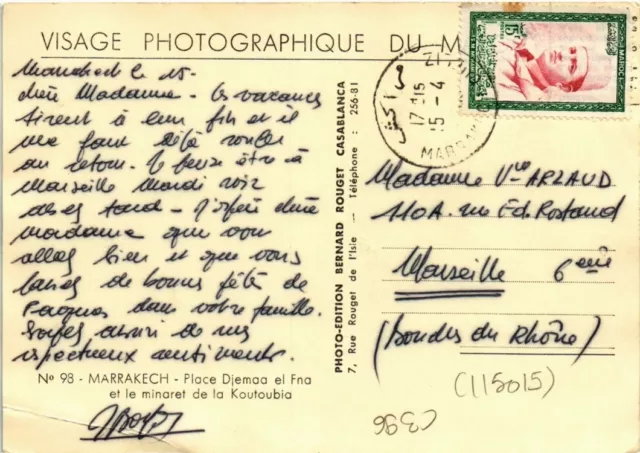 VISAGE PHOTOGRAPHIQUE DU M
Marrakech le 15-
chère Madame - les vacances
tirent à leur fin et il
me faut déjà songer
au retour. Je pense être à
Marseille Mardi soir
assez tard - J'espère chère
madame que vous
allez bien et que vous
de bonnes fêtes de
Paques dans votre famille.
Soyez assurée de mes
respectueux sentiments.
No 98 - MARRAKECH - Place Djemaa el Fna
et le minaret de la Koutoubia
PHOTO-EDITION BERNARD ROUGET CASABLANCA
7, Rue Rouget de l'Isle - Téléphone : 256-81
15F
MAROC
مراكش
17H15
15-4
MARRAK
Madame Vve ARLAUD
110A. rue Ed. Rostand
Marseille 6eme
(Bouches du Rhône)
(115015)
C396